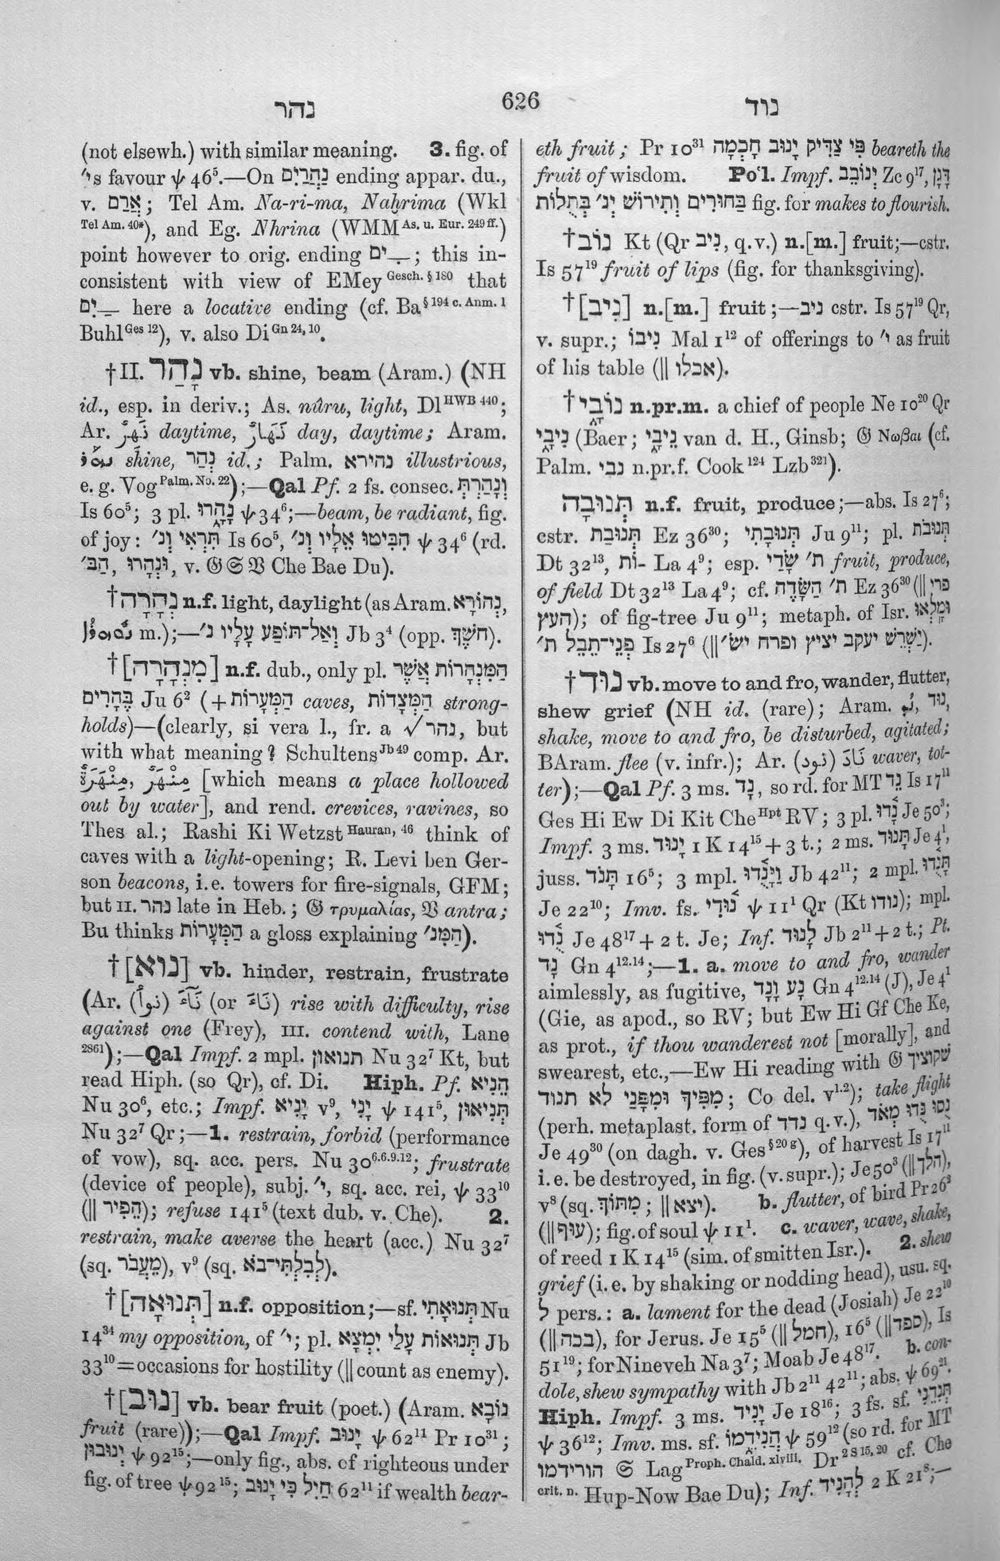 נהר
626
נוד
(not elsewh.) with similar meaning. 3. fig. of
י״s favour ψ 46⁵.—On נַהֲרַיִם ending appar. du.,
v. אֲרָם; Tel Am. Na-ri-ma, Naḫrima (Wkl
Tel Am. 40*), and Eg. Nhrina (WMM As. u. Eur. 249 ff.)
point however to orig. ending ; this in-
consistent with view of EMey Gesch. § 180 that
here a locative ending (cf. Ba § 194 c. Anm. 1
Buhl Ges 12), v. also Di Gn 24, 10.
†II. נָהַר vb. shine, beam (Aram.) (NH
id., esp. in deriv.; As. nûru, light, Dl HWB 440;
Ar. daytime, day, daytime; Aram.
shine, נְהַר id.; Palm. נהירא illustrious,
e. g. Vog Palm. No. 22);—Qal Pf. 2 fs. consec. וְנָהַרְתְּ
Is 60⁵; 3 pl. נָהָרוּ ψ 34⁶;—beam, be radiant, fig.
of joy: תִּרְאִי וְנ׳ Is 60⁵, הִבִּיטוּ אֵלָיו וְנ׳ ψ 34⁶ (rd.
הַבּ׳, וּנְהָרוּ, v. 𝔊 𝔖 𝔙 Che Bae Du).
†נְהָרָה n.f. light, daylight (as Aram. נְהוֹרָא,
m.);—וְאַל־תּוֹפַע עָלָיו נ׳ Jb 3⁴ (opp. חֹשֶׁךְ).
†[מִנְהָרָה] n.f. dub., only pl. הַמִּנְהָרוֹת אֲשֶׁר
בֶּהָרִים Ju 6² (+הַמְּעָרוֹת caves, הַמְּצָדוֹת strong-
holds)—(clearly, si vera l., fr. a √נהר, but
with what meaning? Schultens Jb 49 comp. Ar.
[which means a place hollowed
out by water], and rend. crevices, ravines, so
Thes al.; Rashi Ki Wetzst Hauran, 46 think of
caves with a light-opening; R. Levi ben Ger-
son beacons, i.e. towers for fire-signals, GFM;
but II. נהר late in Heb.; 𝔊 τρυμαλίας, 𝔙 antra;
Bu thinks הַמְּעָרוֹת a gloss explaining הַמִּנ׳).
†[נוּא] vb. hinder, restrain, frustrate
(Ar. (or ) rise with difficulty, rise
against one (Frey), III. contend with, Lane
2861);—Qal Impf. 2 mpl. תנואון Nu 32⁷ Kt, but
read Hiph. (so Qr), cf. Di. Hiph. Pf. הֵנִיא
Nu 30⁶, etc.; Impf. יָנִיא v⁹, יָנִי ψ 141⁵, תְּנִיאוּן
Nu 32⁷ Qr;—1. restrain, forbid (performance
of vow), sq. acc. pers. Nu 30⁶·⁶·⁹·¹²; frustrate
(device of people), subj. י״, sq. acc. rei, ψ 33¹⁰
(∥ הֵפִיר); refuse 141⁵ (text dub. v. Che). 2.
restrain, make averse the heart (acc.) Nu 32⁷
(sq. מֵעֲבֹר), v⁹ (sq. לְבִלְתִּי־בֹא).
†[תְּנוּאָה] n.f. opposition;—sf. תְּנוּאָתִי Nu
14³⁴ my opposition, of י״; pl. תְּנוּאוֹת עָלַי יִמְצָא Jb
33¹⁰=occasions for hostility (∥ count as enemy).
†[נוּב] vb. bear fruit (poet.) (Aram. נוּבָא
fruit (rare));—Qal Impf. יָנוּב ψ 62¹¹ Pr 10³¹;
יְנוּבוּן ψ 92¹⁵;—only fig., abs. of righteous under
fig. of tree ψ 92¹⁵; חַיִל כִּי יָנוּב 62¹¹ if wealth bear-
eth fruit; Pr 10³¹ פִּי צַדִּיק יָנוּב חָכְמָה beareth the
fruit of wisdom. Po‘l. Impf. יְנוֹבֵב Zc 9¹⁷, דָּגָן
בַּחוּרִים וְתִירוֹשׁ יְנ׳ בְּתֻלוֹת fig. for makes to flourish.
†נוֹב Kt (Qr נִיב, q.v.) n.[m.] fruit;—cstr.
Is 57¹⁹ fruit of lips (fig. for thanksgiving).
†[נִיב] n.[m.] fruit;—נִיב cstr. Is 57¹⁹ Qr,
v. supr.; נִיבוֹ Mal 1¹² of offerings to י״ as fruit
of his table (∥ אכלו).
†נוֹבָי n.pr.m. a chief of people Ne 10²⁰ Qr
נֵיבָי (Baer; van d. H., Ginsb; 𝔊 Νωβαι (cf.
Palm. נבי n.pr.f. Cook 124 Lzb 321).
תְּנוּבָה n.f. fruit, produce;—abs. Is 27⁶;
cstr. תְּנוּבַת Ez 36³⁰; תְּנוּבָתִי Ju 9¹¹; pl. תְּנוּבֹת
Dt 32¹³, נוֹ- La 4⁹; esp. ת׳ שָׂדַי fruit, produce,
of field Dt 32¹³ La 4⁹; cf. ת׳ הַשָּׂדֶה Ez 36³⁰ (∥ פרי
העץ); of fig-tree Ju 9¹¹; metaph. of Isr. וּמָלְאוּ
פְנֵי־תֵבֵל ת׳ Is 27⁶ (∥ יַשְׁרֵשׁ יעקב יציץ ופרח יש׳).
†נוּד vb. move to and fro, wander, flutter,
shew grief (NH id. (rare); Aram. נוּד,
shake, move to and fro, be disturbed, agitated;
BAram. flee (v. infr.); Ar. waver, tot-
ter);—Qal Pf. 3 ms. נָד, so rd. for MT נֵד Is 17¹¹
Ges Hi Ew Di Kit Che Hpt RV; 3 pl. נָדוּ Je 50³;
Impf. 3 ms. יָנוּד 1 K 14¹⁵ + 3 t.; 2 ms. תָּנוּד Je 4¹,
juss. תָּנֹד 16⁵; 3 mpl. וַיָּנֻדוּ Jb 42¹¹; 2 mpl. תָּנֻדוּ
Je 22¹⁰; Imv. fs. נוּדִי ψ 11¹ Qr (Kt נודו); mpl.
נֻדוּ Je 48¹⁷ + 2 t. Je; Inf. לָנוּד Jb 2¹¹ + 2 t.; Pt.
נָד Gn 4¹²·¹⁴;—1. a. move to and fro, wander
aimlessly, as fugitive, נָע וָנָד Gn 4¹²·¹⁴ (J), Je 4¹
(Gie, as apod., so RV; but Ew Hi Gf Che Ke,
as prot., if thou wanderest not [morally], and
swearest, etc.,—Ew Hi reading with 𝔊 שקוציך
מִפִּיךָ וּמִפָּנַי לא תנוד; Co del. v¹·²); take flight
(perh. metaplast. form of נדד q.v.), נֻסוּ נֻּדוּ מְאֹד
Je 49³⁰ (on dagh. v. Ges § 20 g), of harvest Is 17¹¹
i.e. be destroyed, in fig. (v. supr.); Je 50³ (∥ הלך),
v⁸ (sq. מִתּוֹךְ; ∥ יצא). b. flutter, of bird Pr 26²
(∥ עוּף); fig. of soul ψ 11¹. c. waver, wave, shake,
of reed 1 K 14¹⁵ (sim. of smitten Isr.). 2. shew
grief (i.e. by shaking or nodding head), usu. sq.
לְ pers.: a. lament for the dead (Josiah) Je 22¹⁰
(∥ בכה), for Jerus. Je 15⁵ (∥ חמל), 16⁵ (∥ ספד), Is
51¹⁹; for Nineveh Na 3⁷; Moab Je 48¹⁷. b. con-
dole, shew sympathy with Jb 2¹¹ 42¹¹; abs. ψ 69²¹.
Hiph. Impf. 3 ms. יָנִיד Je 18¹⁶; 3 fs. sf. תְּנִדֵנִי
ψ 36¹²; Imv. ms. sf. הֲנִיעֵמוֹ ψ 59¹² (so rd. for MT
הורידמו 𝔖 Lag Proph. Chald. xlviii. Dr 2 S 15, 20 cf. Che
crit. n. Hup-Now Bae Du); Inf. לְהָנִיד 2 K 21⁸;—